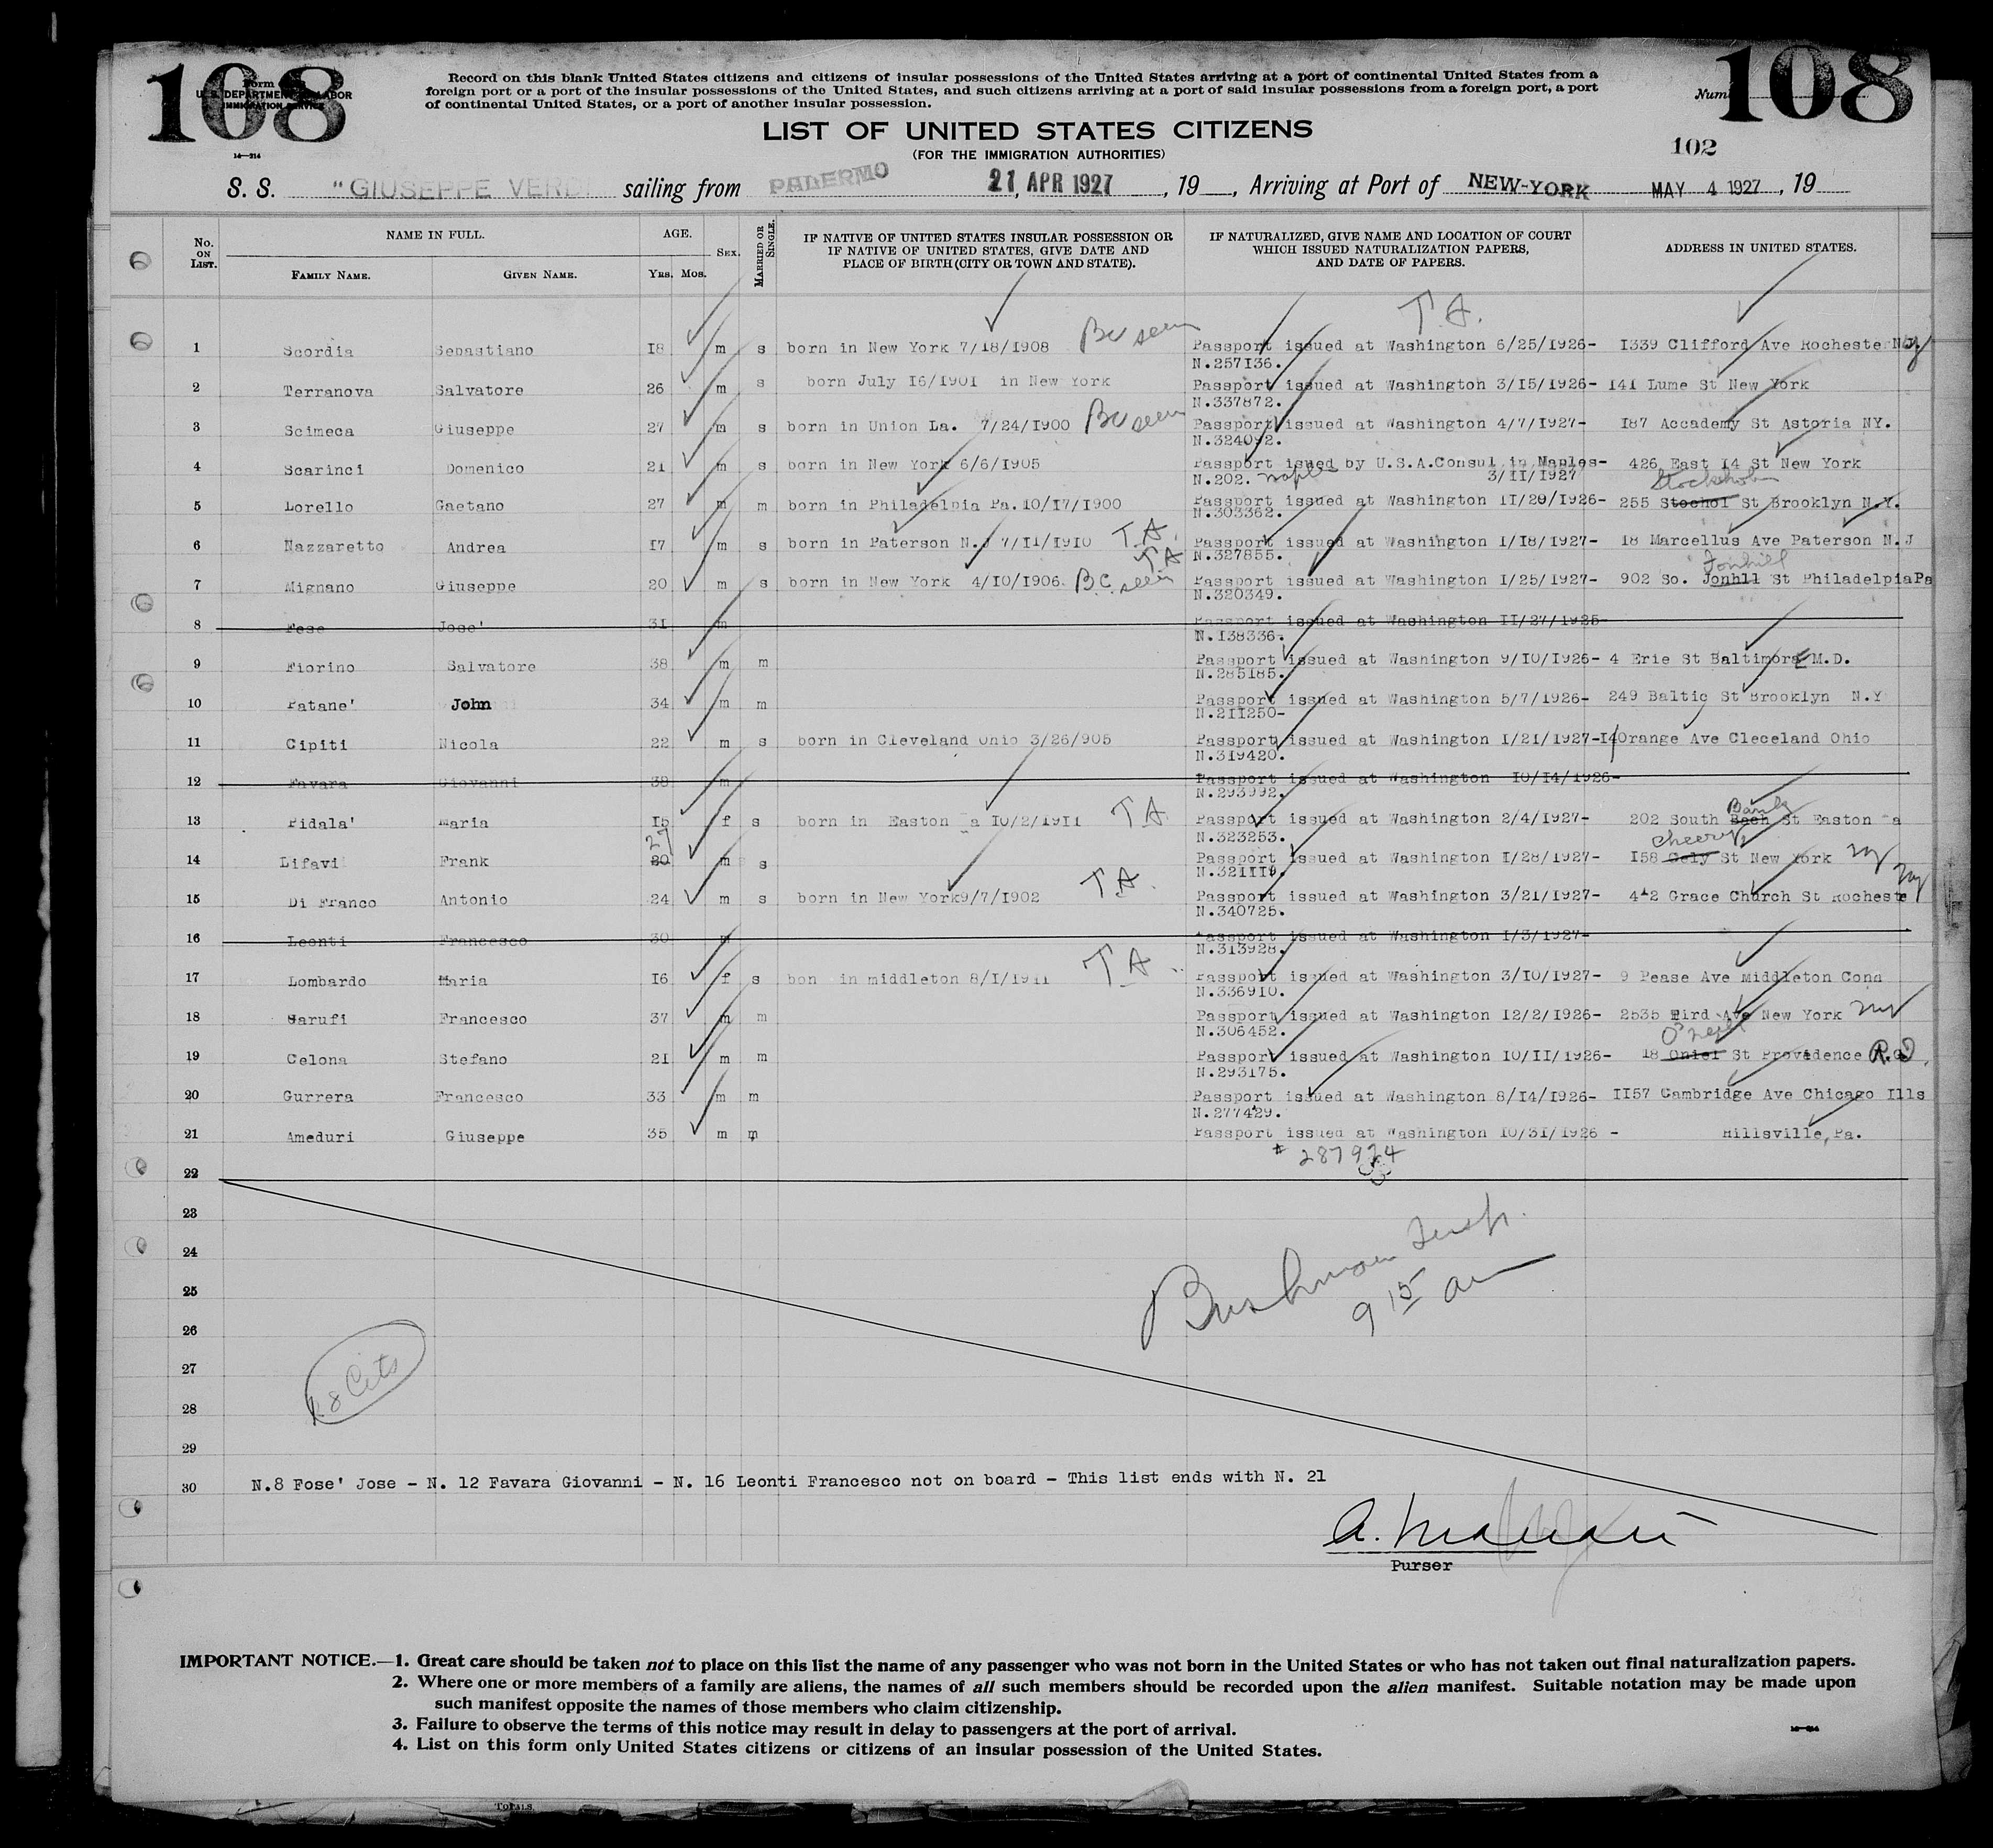 108
108
Form
U. S. DEPARTMENT OF LABOR
IMMIGRATION SERVICE
14—214
Record on this blank United States citizens and citizens of insular possessions of the United States arriving at a port of continental United States from a
foreign port or a port of the insular possessions of the United States, and such citizens arriving at a port of said insular possessions from a foreign port, a port
of continental United States, or a port of another insular possession.
LIST OF UNITED STATES CITIZENS
(FOR THE IMMIGRATION AUTHORITIES)
102
S. S. "GIUSEPPE VERDI sailing from PALERMO 21 APR 1927, 19__, Arriving at Port of NEW-YORK MAY 4 1927, 19
No. ON LIST. NAME IN FULL. FAMILY NAME. GIVEN NAME. AGE. YRS. MOS. SEX. MARRIED OR SINGLE.
IF NATIVE OF UNITED STATES INSULAR POSSESSION OR
IF NATIVE OF UNITED STATES, GIVE DATE AND
PLACE OF BIRTH (CITY OR TOWN AND STATE).
IF NATURALIZED, GIVE NAME AND LOCATION OF COURT
WHICH ISSUED NATURALIZATION PAPERS,
AND DATE OF PAPERS.
ADDRESS IN UNITED STATES.
T.A.
1 Scordia Sebastiano I8 m s born in New York 7/I8/I908 BC seen Passport issued at Washington 6/25/I926- I339 Clifford Ave Rochester N.Y.
N.257I36.
2 Terranova Salvatore 26 m s born July I6/I90I in New York Passport issued at Washington 3/I5/I926- I4I Lume St New York
N.337872.
3 Scimeca Giuseppe 27 m s born in Union La. 7/24/I900 BC seen Passport issued at Washington 4/7/I927- I87 Accademy St Astoria NY.
N.324092.
4 Scarinci Domenico 2I m s born in New York 6/6/I905 Passport isued by U.S.A.Consul in Naples- 426 East I4 St New York
N.202. Naples 3/II/I927
Stockholm
5 Lorello Gaetano 27 m m born in Philadelpia Pa.IO/I7/I900 Passport issued at Washington II/29/I926- 255 Stochol St Brooklyn N.Y.
N.303362.
6 Nazzaretto Andrea I7 m s born in Paterson N.J 7/II/I9IO T.A. Passport issued at Washington I/I8/I927- I8 Marcellus Ave Paterson N.J
N.327855.
T.A.
7 Mignano Giuseppe 20 m s born in New York 4/IO/I906. B.C. seen Passport issued at Washington I/25/I927- 902 So. Jonhll St PhiladelpiaPa
N.320349.
8 Fose Jose' 3I m Passport issued at Washington II/27/I925-
N.I38336.
9 Fiorino Salvatore 38 m m Passport issued at Washington 9/IO/I926- 4 Erie St Baltimore M.D.
N.285I85.
10 Patane' John 34 m m Passport issued at Washington 5/7/I926- 249 Baltic St Brooklyn N.Y
N.2II250-
11 Cipiti Nicola 22 m s born in Cleveland Ohio 3/26/905 Passport issued at Washington I/2I/I927-I4 Orange Ave Cleceland Ohio
N.3I9420.
12 Favara Giovanni 38 m Passport issued at Washington IO/I4/I926-
N.293992.
13 Pidala' Maria I5 f s born in Easton a IO/2/I9II T A Passport issued at Washington 2/4/I927- 202 South Bach St Easton a
N.323253.
27 Cherry
14 Lifavi Frank 30 m s Passport issued at Washington I/28/I927- I58 Cely St New York NY
N.32III9.
NY
15 Di Franco Antonio 24 m s born in New York9/7/I902 T A. Passport issued at Washington 3/2I/I927- 442 Grace Church St Rocheste
N.340725.
16 Leonti Francesco 30 m Passport issued at Washington I/3/I927-
N.3I3928.
17 Lombardo Maria I6 f s bon in middleton 8/I/I9II T A. Passport issued at Washington 3/IO/I927- 9 Pease Ave Middleton Conn
N.3369IO.
18 Garufi Francesco 37 m m Passport issued at Washington I2/2/I926- 2535 Tird Ave New York NY
N.306452.
O'Neill
19 Celona Stefano 2I m m Passport issued at Washington IO/II/I926- I8 Oniel St Providence R.I.
N.293I75.
20 Gurrera Francesco 33 m m Passport issued at Washington 8/I4/I926- II57 Cambridge Ave Chicago Ills
N.277429.
21 Ameduri Giuseppe 35 m m Passport issued at Washington IO/3I/I926 - Hillsville, Pa.
# 287924
22
23
24
25
26
27
28
29
Bushman Insp.
9 15 am
18 Cits
30 N.8 Fose' Jose - N. 12 Favara Giovanni - N. 16 Leonti Francesco not on board - This list ends with N. 21
Purser
IMPORTANT NOTICE.—1. Great care should be taken not to place on this list the name of any passenger who was not born in the United States or who has not taken out final naturalization papers.
2. Where one or more members of a family are aliens, the names of all such members should be recorded upon the alien manifest. Suitable notation may be made upon
such manifest opposite the names of those members who claim citizenship.
3. Failure to observe the terms of this notice may result in delay to passengers at the port of arrival.
4. List on this form only United States citizens or citizens of an insular possession of the United States.
TOTALS